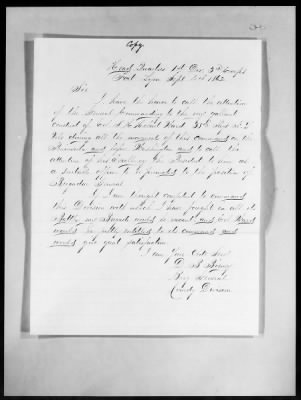 Copy
Head Quarters 1st Div. 3rd Corps
Fort Lyon Sept 1862
Sir
I have the honor to call the attention
of the General Commanding to the very gallant
conduct of Col. J. H. Hobart Ward 38th
during all the movements of this command on the
Peninsula, and before Washington and to call the
attention of his Excellency the President to him as
a suitable officer to be promoted to the position of
Brigadier General
If I am thought competent to command
this Division with which I have fought in all its
battles, my Brigade would be vacant, and Col Ward
would be fully entitled to its command and
would give great satisfaction
I am Your Obt Servt
D. B. Birney
Brig General
Comdg Division